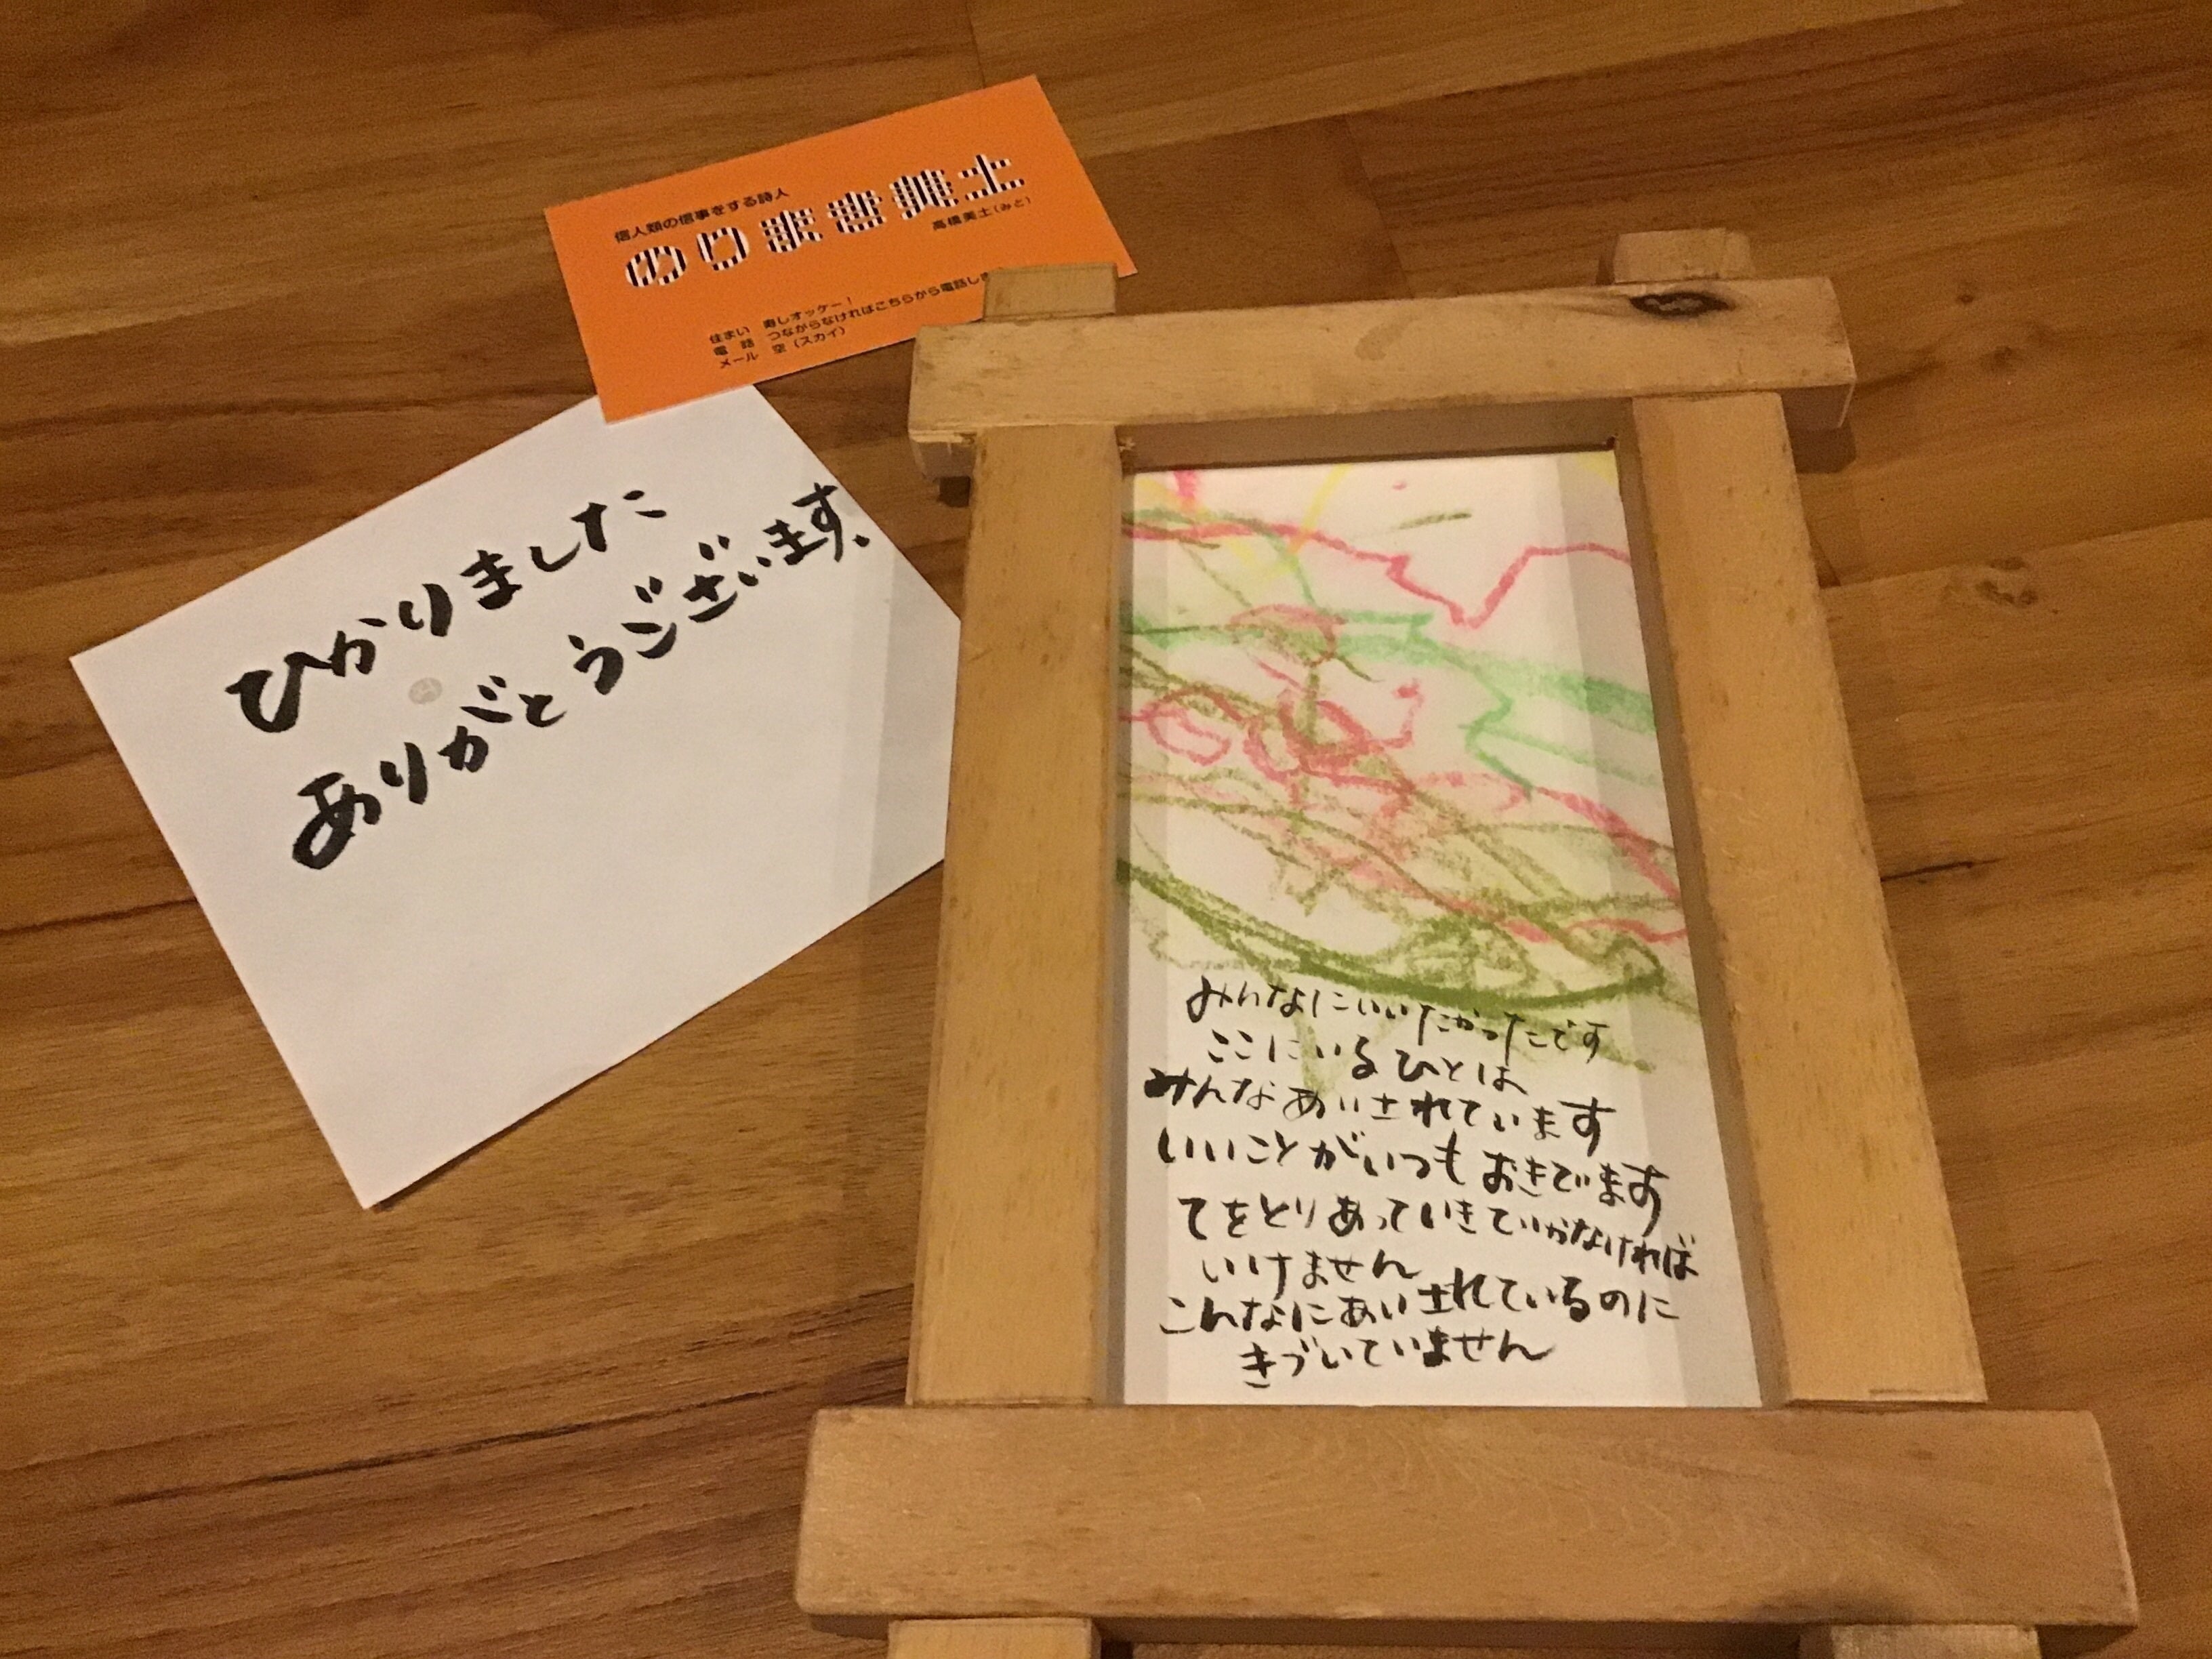 信人類の信事をする詩人
のりまき美土
高橋美土(みと)
住まい 寿しオッケー!
電話 つながらなければこちらから電話しま
メール 空(スカイ)
ひかりました
ありがとうございます。
みんなにいいたかったです
ここにいるひとは
みんなあいされています
いいことがいつもおきています
てをとりあっていきていかなければ
いけません
こんなにあいされているのに
きづいていません